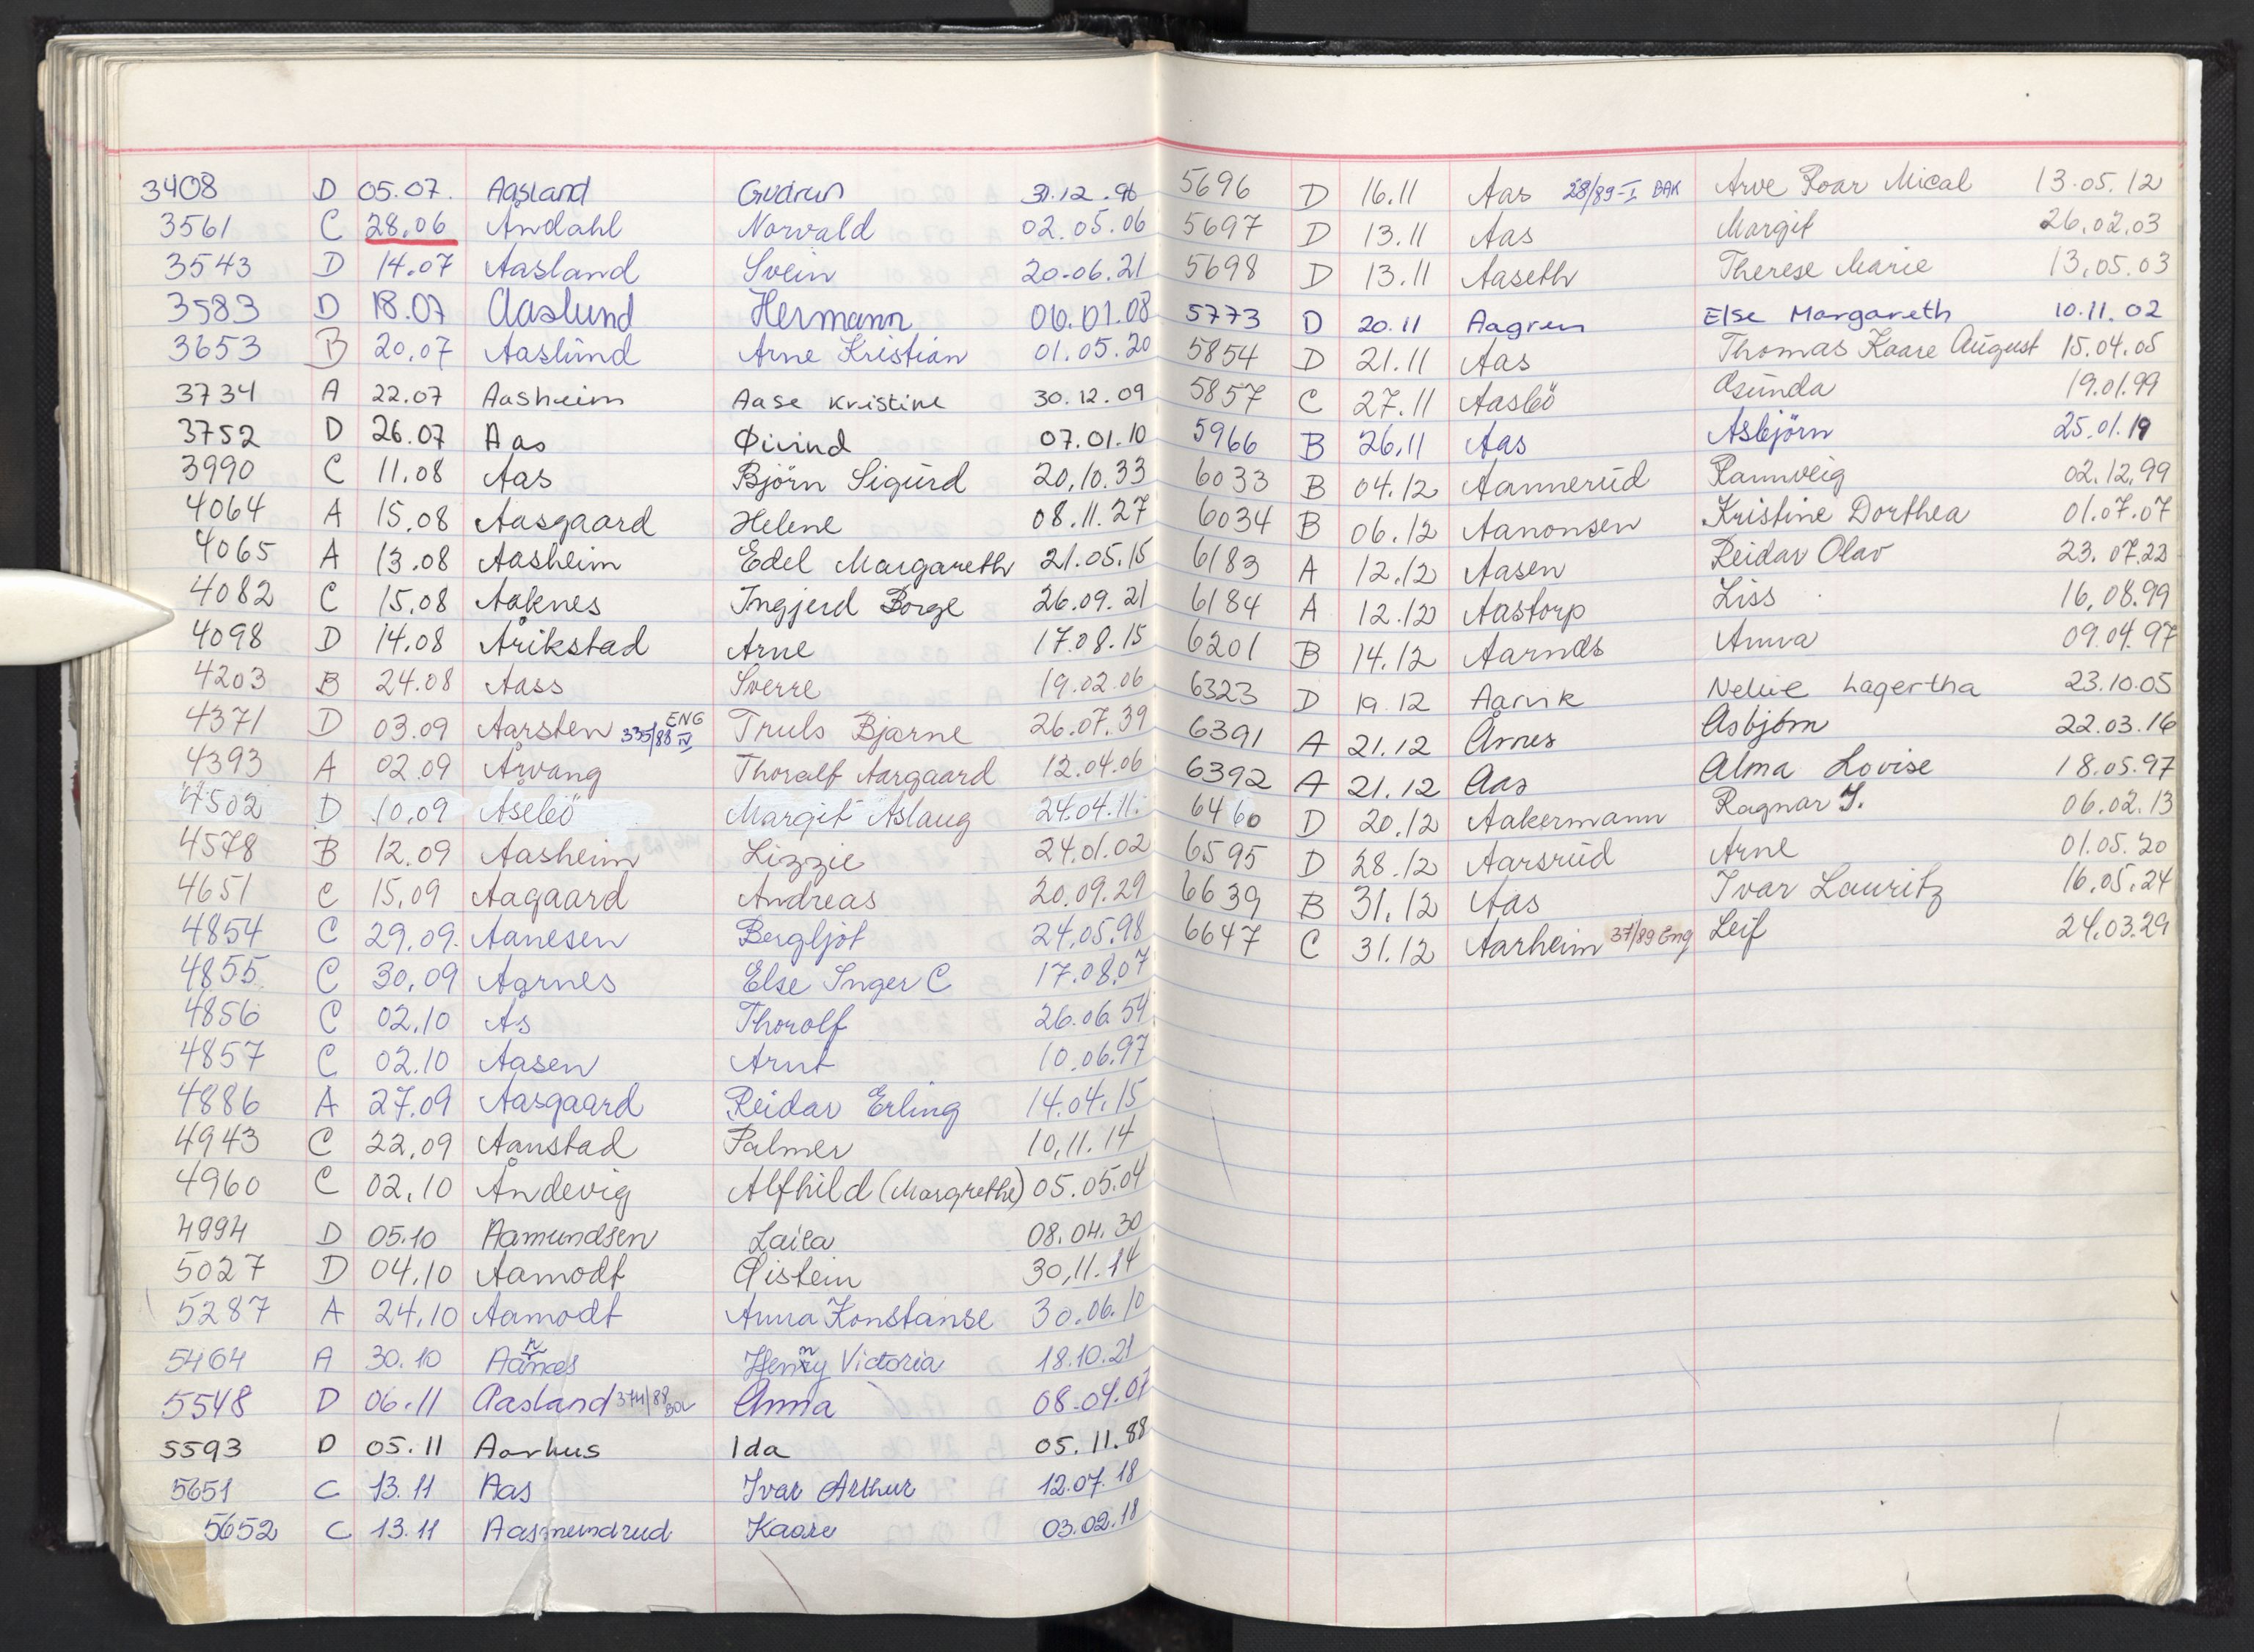 3408 D 05.07. Aasland Gudrun 31.12.96
3561 C 28.06 Åndahl Norvald 02.05.06
3543 D 14.07 Aasland Svein 20.06.21
3583 D 18.07 Aaslund Hermann 06.01.08
3653 B 20.07 Aaslund Arne Kristian 01.05.20
3734 A 22.07 Aasheim Aase Kristine 30.12.09
3752 D 26.07 Aas Øivind 07.01.10
3990 C 11.08 Aas Björn Sigurd 20.10.33
4064 A 15.08 Aasgaard Helene 08.11.27
4065 A 13.08 Aasheim Edel Margareth 21.05.15
4082 C 15.08 Aaknes Ingjerd Borge 26.09.21
4098 D 14.08 Årikstad Arne 17.08.15
4203 B 24.08 Aass Sverre 19.02.06
4371 D 03.09 Aarsten 335/88 ENG IV Truls Bjarne 26.07.39
4393 A 02.09 Årvang Thoralf Aargaard 12.04.06
4502 D 10.09 Åsebö Margit Åslaug 24.04.11.
4578 B 12.09 Aasheim Lizzie 24.01.02
4651 C 15.09 Aagaard Andreas 20.09.29
4854 C 29.09. Aanesen Bergljot 24.05.98
4855 C 30.09 Aarnes Else Inger C 17.08.07
4856 C 02.10 Ås Thorolf 26.06.54
4857 C 02.10 Aasen Arnt 10.06.97
4886 A 27.09 Aasgaard Reidar Erling 14.04.15
4943 C 22.09 Aanstad Palmer 10.11.14
4960 C 02.10 Åndevig Alfhild (Margrethe) 05.05.04
4994 D 05.10 Aamundsen Laila 08.04.30
5027 D 04.10 Aamodt Øistein 30.11.14
5287 A 24.10 Aamodt Anna Konstanse 30.06.10
5464 A 30.10 Aanes Henny Victoria 18.10.21
5548 D 06.11 Aasland 374/88 BOL Anna 08.04.07
5593 D 05.11 Aarhus Ida 05.11.88
5651 C 13.11 Aas Ivar Arthur 12.07.18
5652 C 13.11 Aasmundrud Kaare 03.02.18
5696 D 16.11 Aas 28/89-I BAK Arve Roar Mical 13.05.12
5697 D 13.11 Aas Margit 26.02.03
5698 D 13.11 Aaseth Therese Marie 13.05.03
5773 D 20.11 Aagren Else Margareth 10.11.02
5854 D 21.11 Aas Thomas Kaare August 15.04.05
5857 C 27.11 Aasbö Gunda 19.01.99
5966 B 26.11 Aas Asbjörn 25.01.19
6033 B 04.12 Aannerud Rannveig 02.12.99
6034 B 06.12 Aanonsen Kristine Dorthea 01.07.07
6183 A 12.12 Aasen Reidar Olav 23.07.22
6184 A 12.12 Aastorp Liss 16.08.99
6201 B 14.12 Aarnds Anna 09.04.97
6323 D 19.12 Aarvik Nellie Lagertha 23.10.05
6391 A 21.12 Årnes Asbjörn 22.03.16
6392 A 21.12 Aas Alma Lovise 18.05.97
6460 D 20.12 Aakermann Ragnar J. 06.02.13
6595 D 28.12 Aarsrud Arne 01.05.20
6639 B 31.12 Aas Ivar Lauritz 16.05.24
6647 C 31.12 Aarheim 37/89 Eng Leif 24.03.29